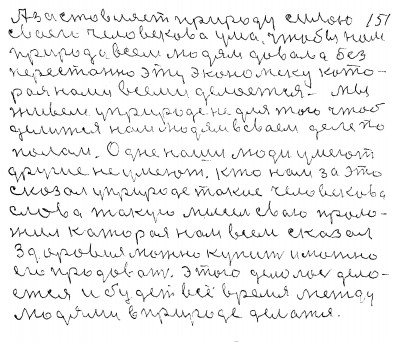 А заставляет природу силою 151
своей человекова ума, чтобы нам
природа всем людям давала без
перестанно эту экономеку кото-
рая нами всеми делается. Мы
живем у природе не для того чтоб
делится нам людям в своем деле по
полам. Одне наши люди умеют
другие не умеют. Кто нам за это
сказал у природе такие человекова
слова такую мысл сваю проло-
жил каторая нам всем сказал
Здоровия можно купит и можно
его продоват. Этого делолос дело-
ется и будет всё время между
людями в природе делатся.